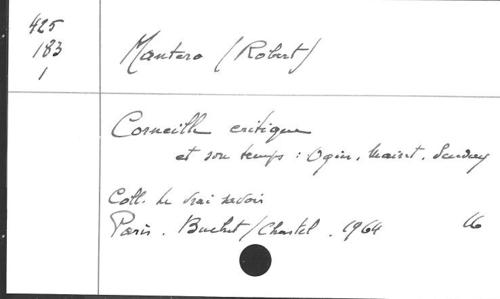 425
183
1
Mantero (Robert)
Corneille critique
et son temps : Ogier. Mairet. Scudéry
Coll. Le vrai savoir
Paris. Buchet/Chastel. 1964